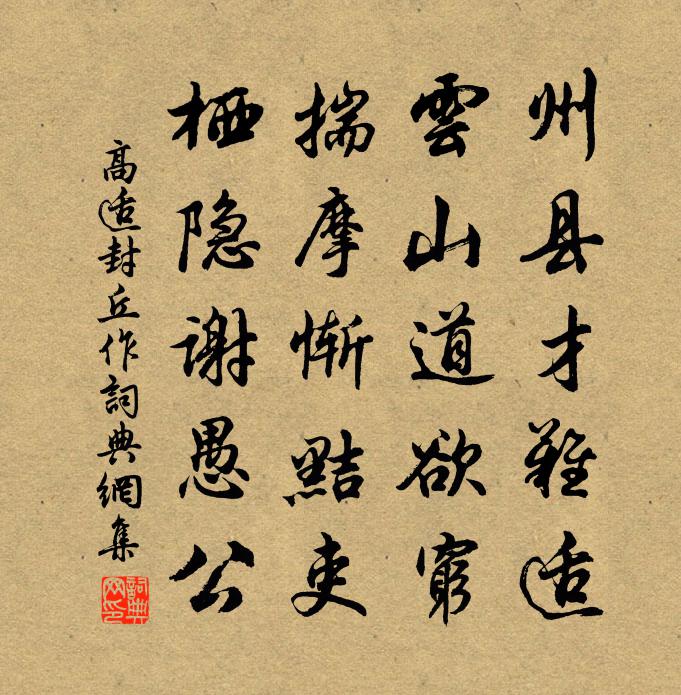 州县才难适
雲山道欲窮
揣摩惭黠吏
栖隐謝愚公
高适封丘作詞典網集
詞典網印